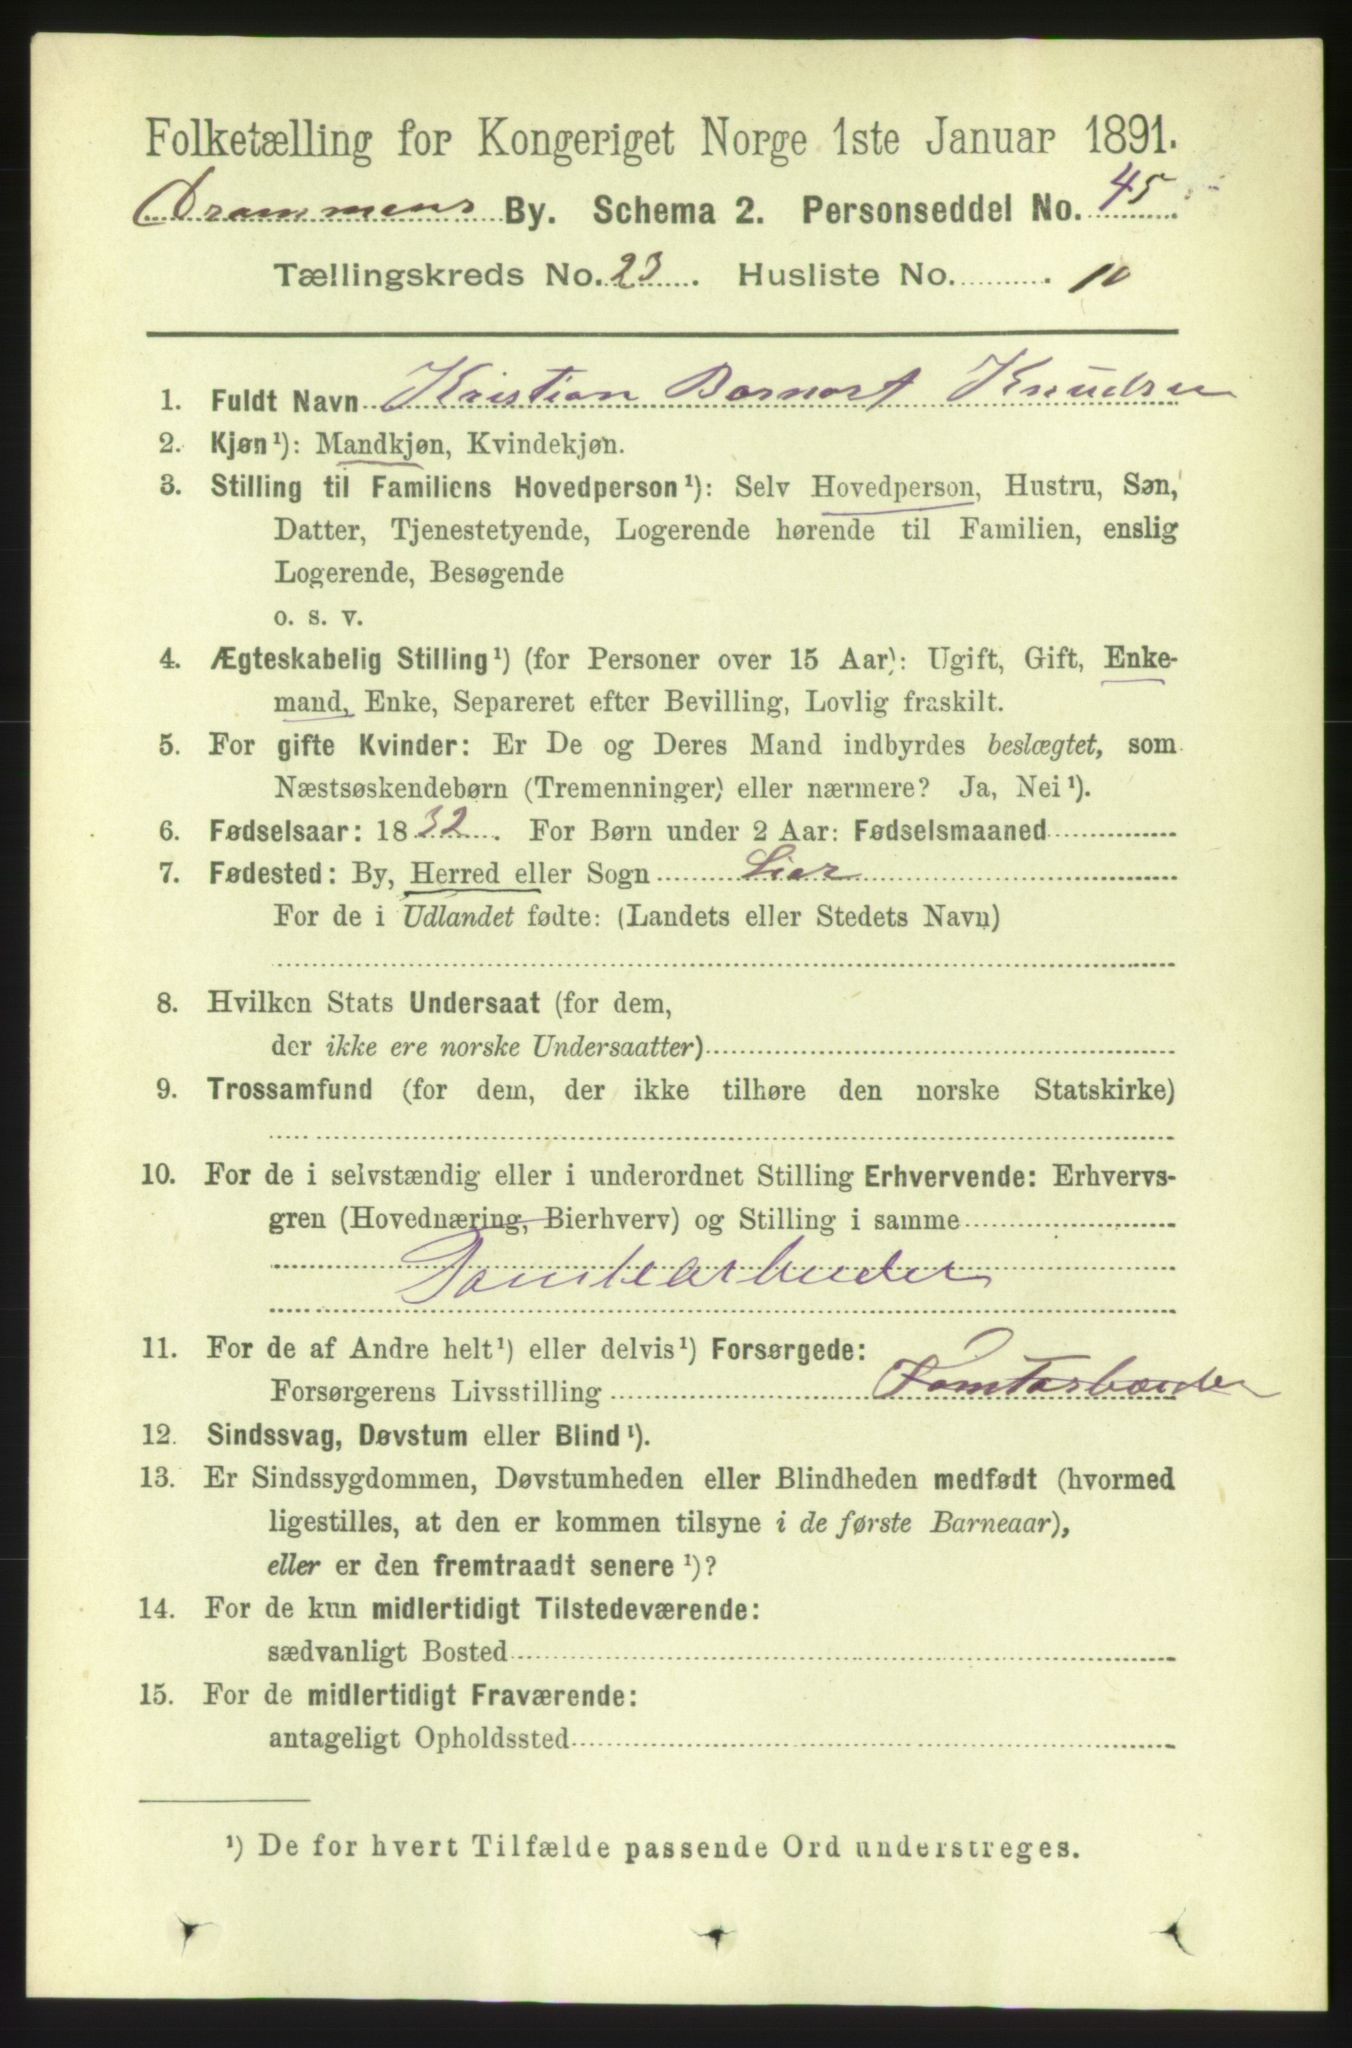 Folketælling for Kongeriget Norge 1ste Januar 1891.
Drammens By. Schema 2. Personseddel No. 45
Tællingskreds No. 23. Husliste No. 10
1. Fuldt Navn Kristian Knudsen
2. Kjøn¹): Mandkjøn, Kvindekjøn.
3. Stilling til Familiens Hovedperson¹): Selv Hovedperson, Hustru, Søn,
Datter, Tjenestetyende, Logerende hørende til Familien, enslig
Logerende, Besøgende
o. s. v.
4. Ægteskabelig Stilling¹) (for Personer over 15 Aar): Ugift, Gift, Enke-
mand, Enke, Separeret efter Bevilling, Lovlig fraskilt.
5. For gifte Kvinder: Er De og Deres Mand indbyrdes beslægtet, som
Næstsøskendebørn (Tremenninger) eller nærmere? Ja, Nei¹).
6. Fødselsaar: 1832. For Børn under 2 Aar: Fødselsmaaned
7. Fødested: By, Herred eller Sogn Lier
For de i Udlandet fødte: (Landets eller Stedets Navn)
8. Hvilken Stats Undersaat (for dem,
der ikke ere norske Undersaatter)
9. Trossamfund (for dem, der ikke tilhøre den norske Statskirke)
10. For de i selvstændig eller i underordnet Stilling Erhvervende: Erhvervs-
gren (Hovednæring, Bierhverv) og Stilling i samme
11. For de af Andre helt¹) eller delvis¹) Forsørgede:
Forsørgerens Livsstilling
12. Sindssvag, Døvstum eller Blind¹).
13. Er Sindssygdommen, Døvstumheden eller Blindheden medfødt (hvormed
ligestilles, at den er kommen tilsyne i de første Barneaar),
eller er den fremtraadt senere¹)?
14. For de kun midlertidigt Tilstedeværende:
sædvanligt Bosted
15. For de midlertidigt Fraværende:
antageligt Opholdssted
¹) De for hvert Tilfælde passende Ord understreges.